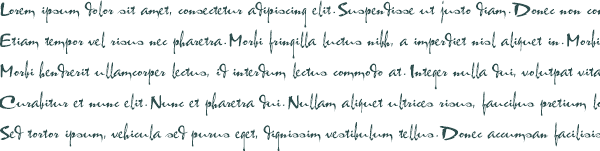 Lorem ipsum dolor sit amet, consectetur adipiscing elit. Suspendisse ut justo diam. Donec non con
Etiam tempor vel risus nec pharetra. Morbi fringilla luctus nibh, a imperdiet nisl aliquet in. Morbi
Morbi hendrerit ullamcorper lectus, id interdum lectus commodo at. Integer nulla dui, volutpat vita
Curabitur et nunc elit. Nunc et pharetra dui. Nullam aliquet ultrices risus, faucibus pretium lo
Sed tortor ipsum, vehicula sed purus eget, dignissim vestibulum tellus. Donec accumsan facilisis